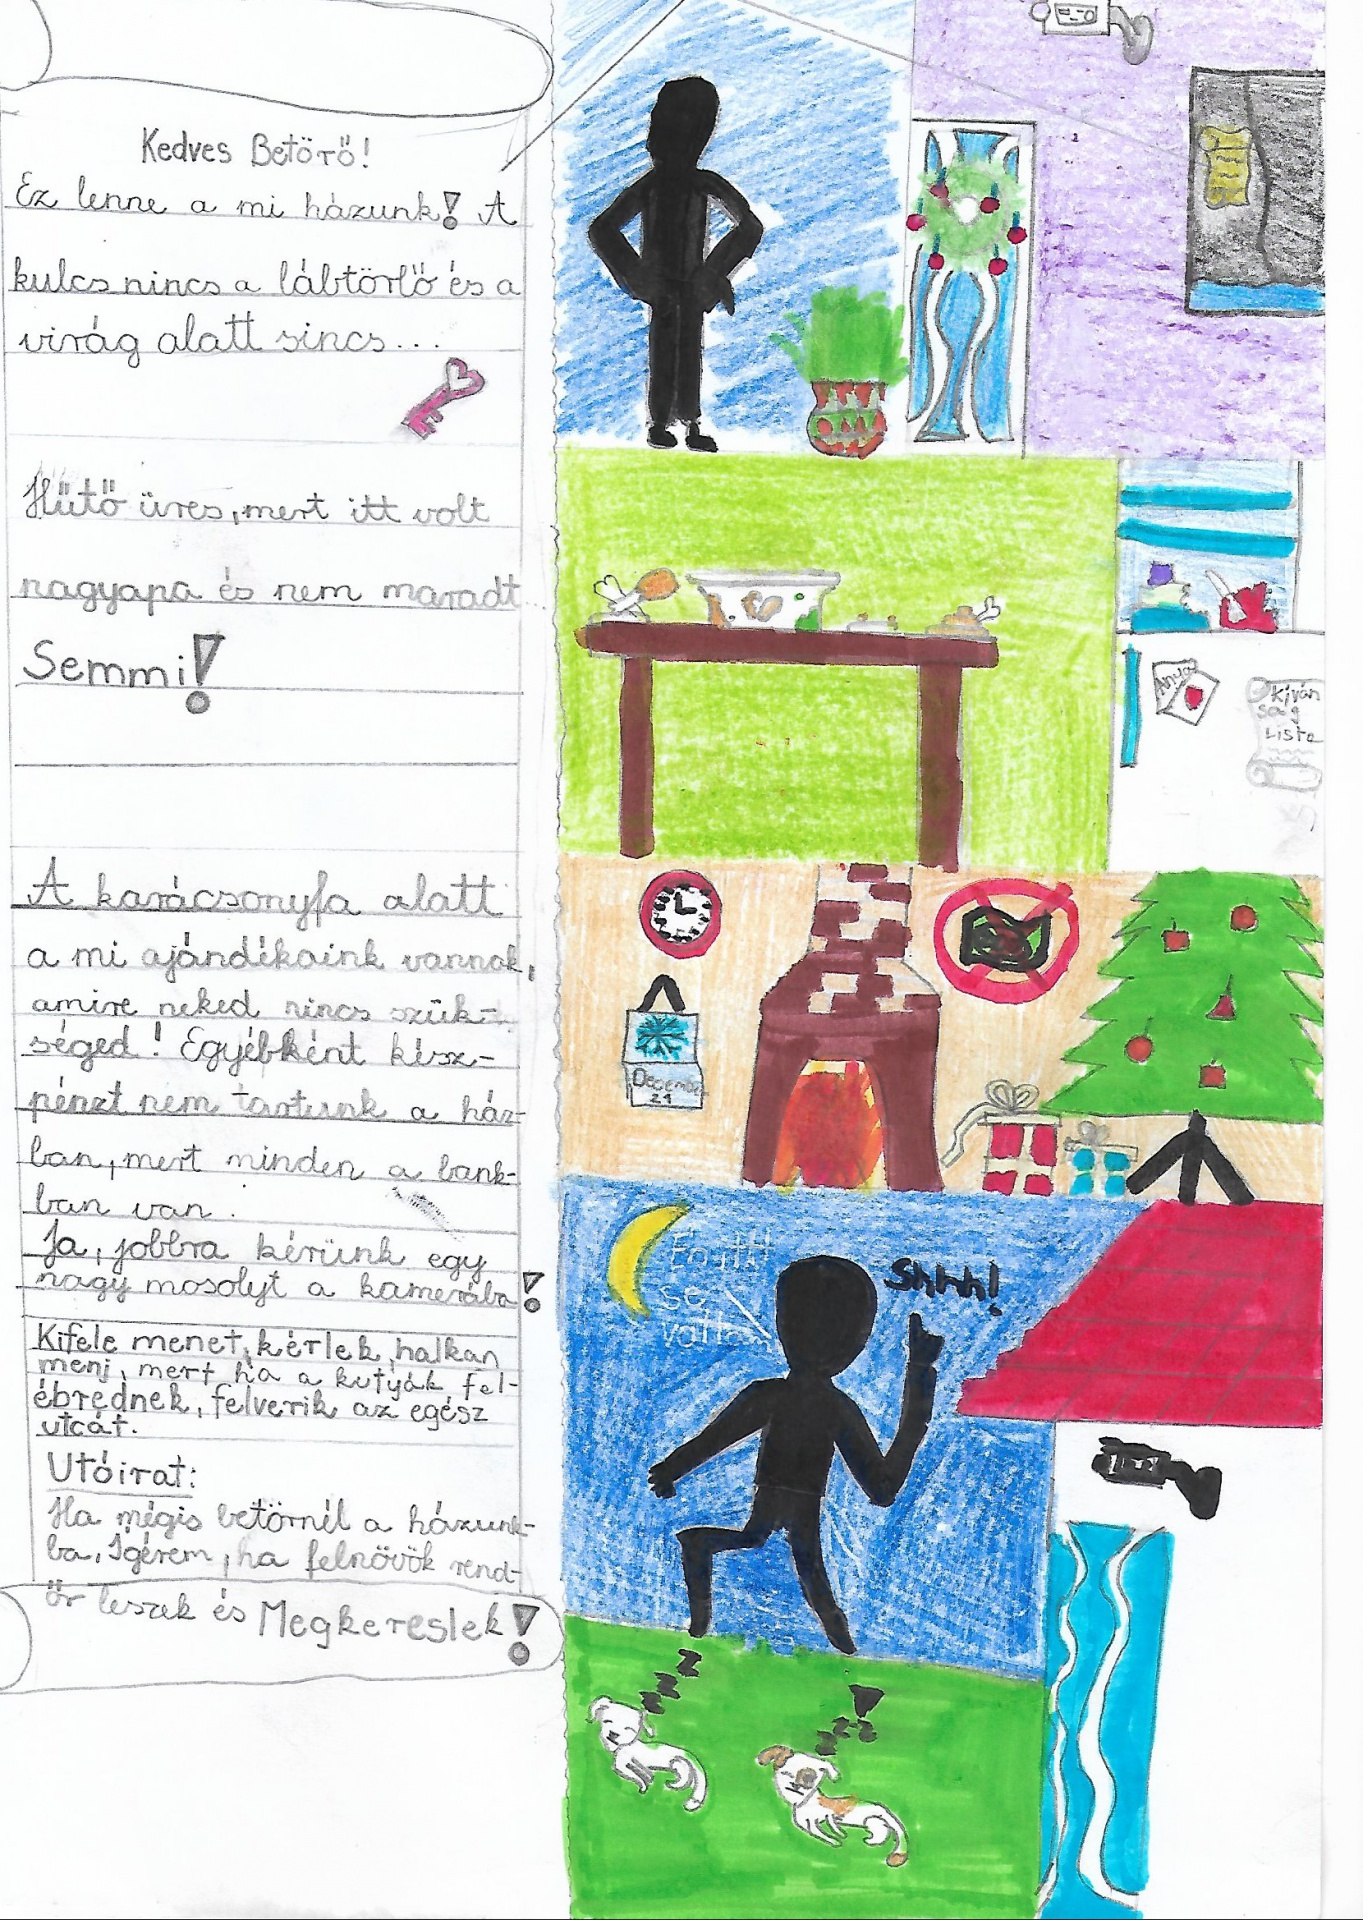 Kedves Betörő!
Ez lenne a mi házunk! A
kulcs nincs a lábtörlő és a
virág alatt sincs...
Hűtő üres, mert itt volt
nagyapa és nem maradt
Semmi!
A karácsonyfa alatt
a mi ajándékaink vannak,
amire neked nincs szük-
séged! Egyébként kész-
pénzt nem tartunk a ház-
ban, mert minden a bank-
ban van.
Ja, jobbra kérünk egy
nagy mosolyt a kamerába!
Kifele menet, kérlek, halkan
menj, mert ha a kutyák fel-
ébrednek, felverik az egész
utcát.
Utóirat:
Ha mégis betörnél a házunk-
ba, Igérem, ha felnövök rend-
őr leszek és Megkereslek!
Anya
Kíván
ság
Lista
December
24
se
Shhh!
z z z Z
z z z